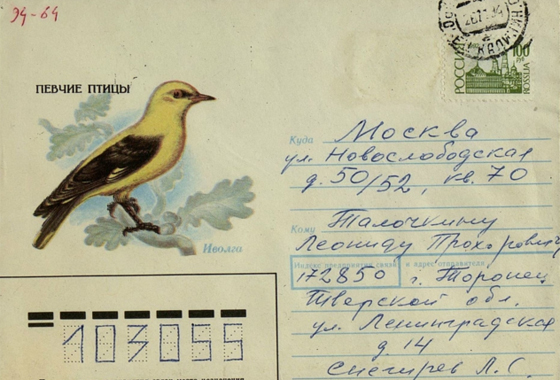 94-64
ПЕВЧИЕ ПТИЦЫ
Иволга
РОССИЯ
100
ROSSIJA
Куда
Москва
ул. Новослободская
д. 50/52, кв. 70
Кому
Талочкину
Леониду Прохоровичу
Индекс предприятия связи и адрес отправителя
172850 г. Торопец
Тверской обл.
ул. Ленинградская
д. 14
Снегирев Л. С.
103055